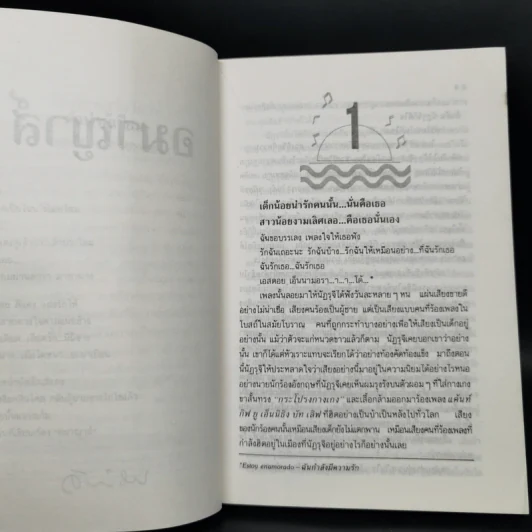 1
เด็กน้อยน่ารักคนนั้น...นั่นคือเธอ
สาวน้อยงามเลิศเลอ...คือเธอนั่นเอง
ฉันขอบรรเลง เพลงใจให้เธอฟัง
รักฉันเถอะนะ รักฉันบ้าง...รักฉันให้เหมือนอย่าง...ที่ฉันรักเธอ
ฉันรักเธอ...ฉันรักเธอ
เอสตอย เอ็นนามอรา...า...า...โด้...*
เพลงนั้นลอยมาให้นัฏรุจิได้ฟังวันละหลาย ๆ หน แผ่นเสียงขายดี
อย่างไม่น่าเชื่อ เสียงคนร้องเป็นผู้ชาย แต่เป็นเสียงแบบคนที่ร้องเพลงใน
โบสถ์ในสมัยโบราณ คนที่ถูกกระทำบางอย่างเพื่อให้เสียงเป็นเด็กอยู่
อย่างนั้น แม้ว่าตัวจะแก่หนวดขาวแล้วก็ตาม นัฏรุจิเคยบอกเขาว่าอย่าง
นั้น เขาก็ได้แต่หัวเราะแทบจะเรียกได้ว่าอย่างท้องคัดท้องแข็ง มาถึงตอน
นี้นัฏรุจิให้ประหลาดใจว่าเสียงอย่างนี้มาอยู่ในความนิยมได้อย่างไรหนอ
อย่างนายนักร้องอังกฤษที่นัฏรุจิเคยเห็นผมรุงรังบนตัวผอม ๆ ที่ใส่กางเกง
ขาสั้นทรง "กระโปรงกางเกง" และเสื้อกล้ามออกมาร้องเพลง แค้นท์
กิฟ ยู เอ็นนิธิง บัท เลิฟ ที่ฮิตอย่างเป็นบ้าเป็นหลังไปทั่วโลก เสียง
ของนักร้องคนนั้นเหมือนเสียงเด็กยังไม่แตกพาน เหมือนเสียงคนที่ร้องเพลงที่
กำลังฮิตอยู่ในเมืองที่นัฏรุจิอยู่อย่างไรก็อย่างนั้นเลย
*Estoy enamorado – ฉันกำลังมีความรัก